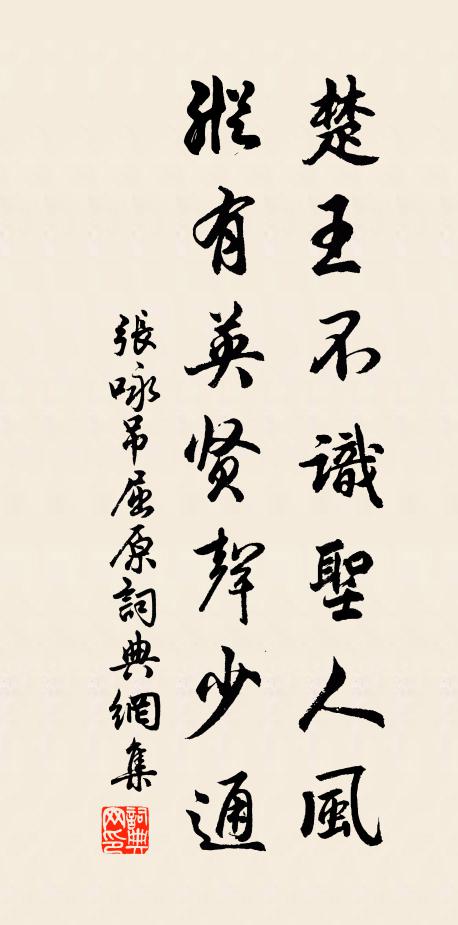 楚王不識聖人風
縱有英贤聲少通
張咏吊屈原詞典網集
詞典网印